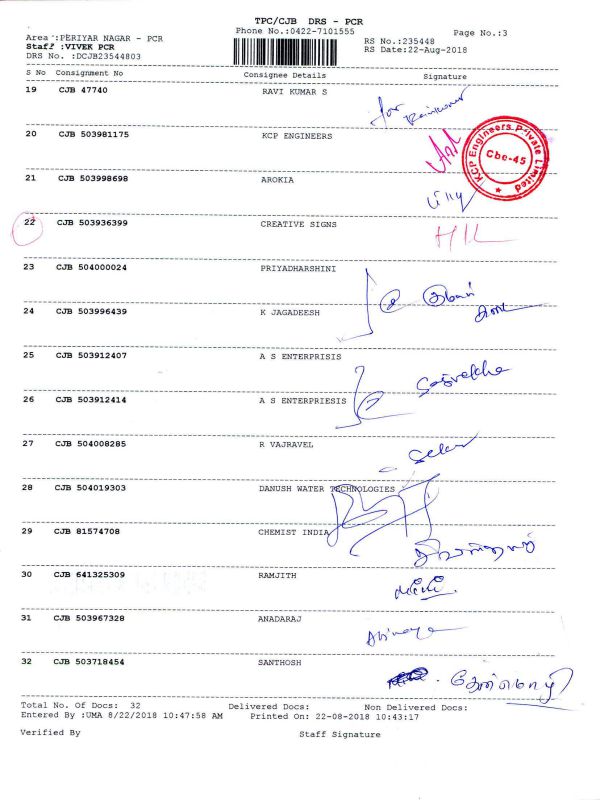 TPC/CJB DRS - PCR
Phone No.:0422-7101555
Page No.:3
Area :PERIYAR NAGAR - PCR
RS No.:235448
Staff :VIVEK PCR
RS Date:22-Aug-2018
DRS No. :DCJB23544803
S No Consignment No Consignee Details Signature
19 CJB 47740 RAVI KUMAR S
for Ravikumar
20 CJB 503981175 KCP ENGINEERS
KCP Engineers Private Limited
Cbe-45
21 CJB 503998698 AROKIA
22 CJB 503936399 CREATIVE SIGNS
23 CJB 504000024 PRIYADHARSHINI
24 CJB 503996439 K JAGADEESH
25 CJB 503912407 A S ENTERPRISIS
Sasirekha
26 CJB 503912414 A S ENTERPRIESIS
27 CJB 504008285 R VAJRAVEL
28 CJB 504019303 DANUSH WATER TECHNOLOGIES
29 CJB 81574708 CHEMIST INDIA
30 CJB 641325309 RAMJITH
31 CJB 503967328 ANADARAJ
Abinaya
32 CJB 503718454 SANTHOSH
தேன்மொழி
Total No. Of Docs: 32 Delivered Docs: Non Delivered Docs:
Entered By :UMA 8/22/2018 10:47:58 AM Printed On: 22-08-2018 10:43:17
Verified By Staff Signature